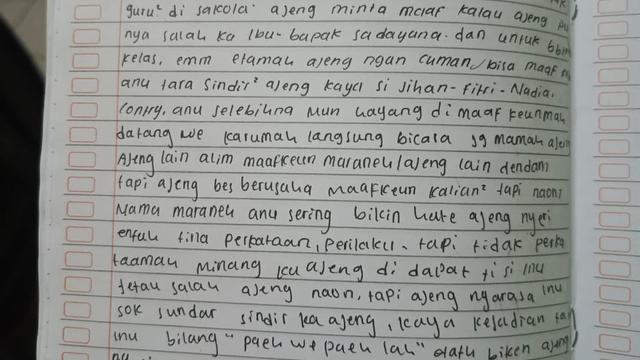 guru² di sakola. ajeng minta maaf kalau ajeng pu
nya salah ka Ibu-bapak sadayana. dan untuk
kelas, emm etamah ajeng ngan cuman bisa maaf
anu tara sindir² ajeng kaya si Jihan-Fitri-Nadia.
anu selebihna mun hayang di maaf keun mah
datang we karumah langsung bicara sg mamah ajen
Ajeng lain alim maafkeun maraneh/ajeng lain dendam
tapi ajeng bes berusaha maafkeun kalian² tapi naon
Nama maraneh anu sering bikin hate ajeng nyeri
entah tina perkataan, perilaku. tapi tidak
taamah minang ka ajeng di dapat ti si inu
tetau salah ajeng naon, tapi ajeng ngarasa inu
sok sundar sindir ka ajeng, kaya kejadian
inu bilang "paeh we paeh lah" biken ajeng